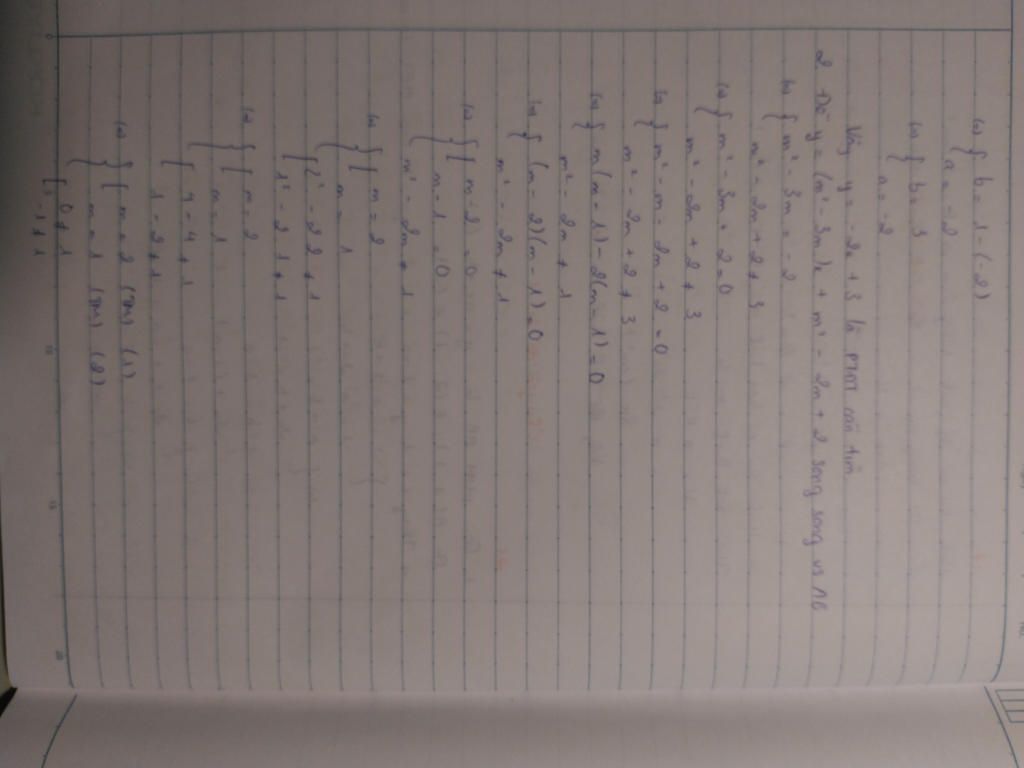 (=) { b = 1 - (-2)
a = -2
(=) { b = 3
a = -2
Vậy y = -2x + 3 là PTĐT cần tìm
2 Để y = (m² - 3m)x + m² - 2m + 2 song song vs AB
(=) { m² - 3m = -2
m² - 2m + 2 ≠ 3
(=) { m² - 3m + 2 = 0
m² - 2m + 2 ≠ 3
(=) { m² - m - 2m + 2 = 0
m² - 2m + 2 ≠ 3
(=) { m(m - 1) - 2(m - 1) = 0
m² - 2m ≠ 1
(=) { (m - 2)(m - 1) = 0
m² - 2m ≠ 1
(=) { [ m - 2 = 0
m - 1 = 0
m² - 2m ≠ 1
(=) { [ m = 2
m = 1
[ 2² - 2.2 ≠ 1
1² - 2.1 ≠ 1
(=) { [ m = 2
m = 1
[ 4 - 4 ≠ 1
1 - 2 ≠ 1
(=) { [ m = 2 (TM) (1)
m = 1 (TM) (2)
[ 0 ≠ 1
-1 ≠ 1